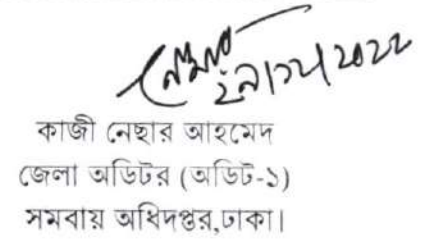 ২৯/১২/২০২২
কাজী নেছার আহমেদ
জেলা অডিটর (অডিট-১)
সমবায় অধিদপ্তর,ঢাকা।